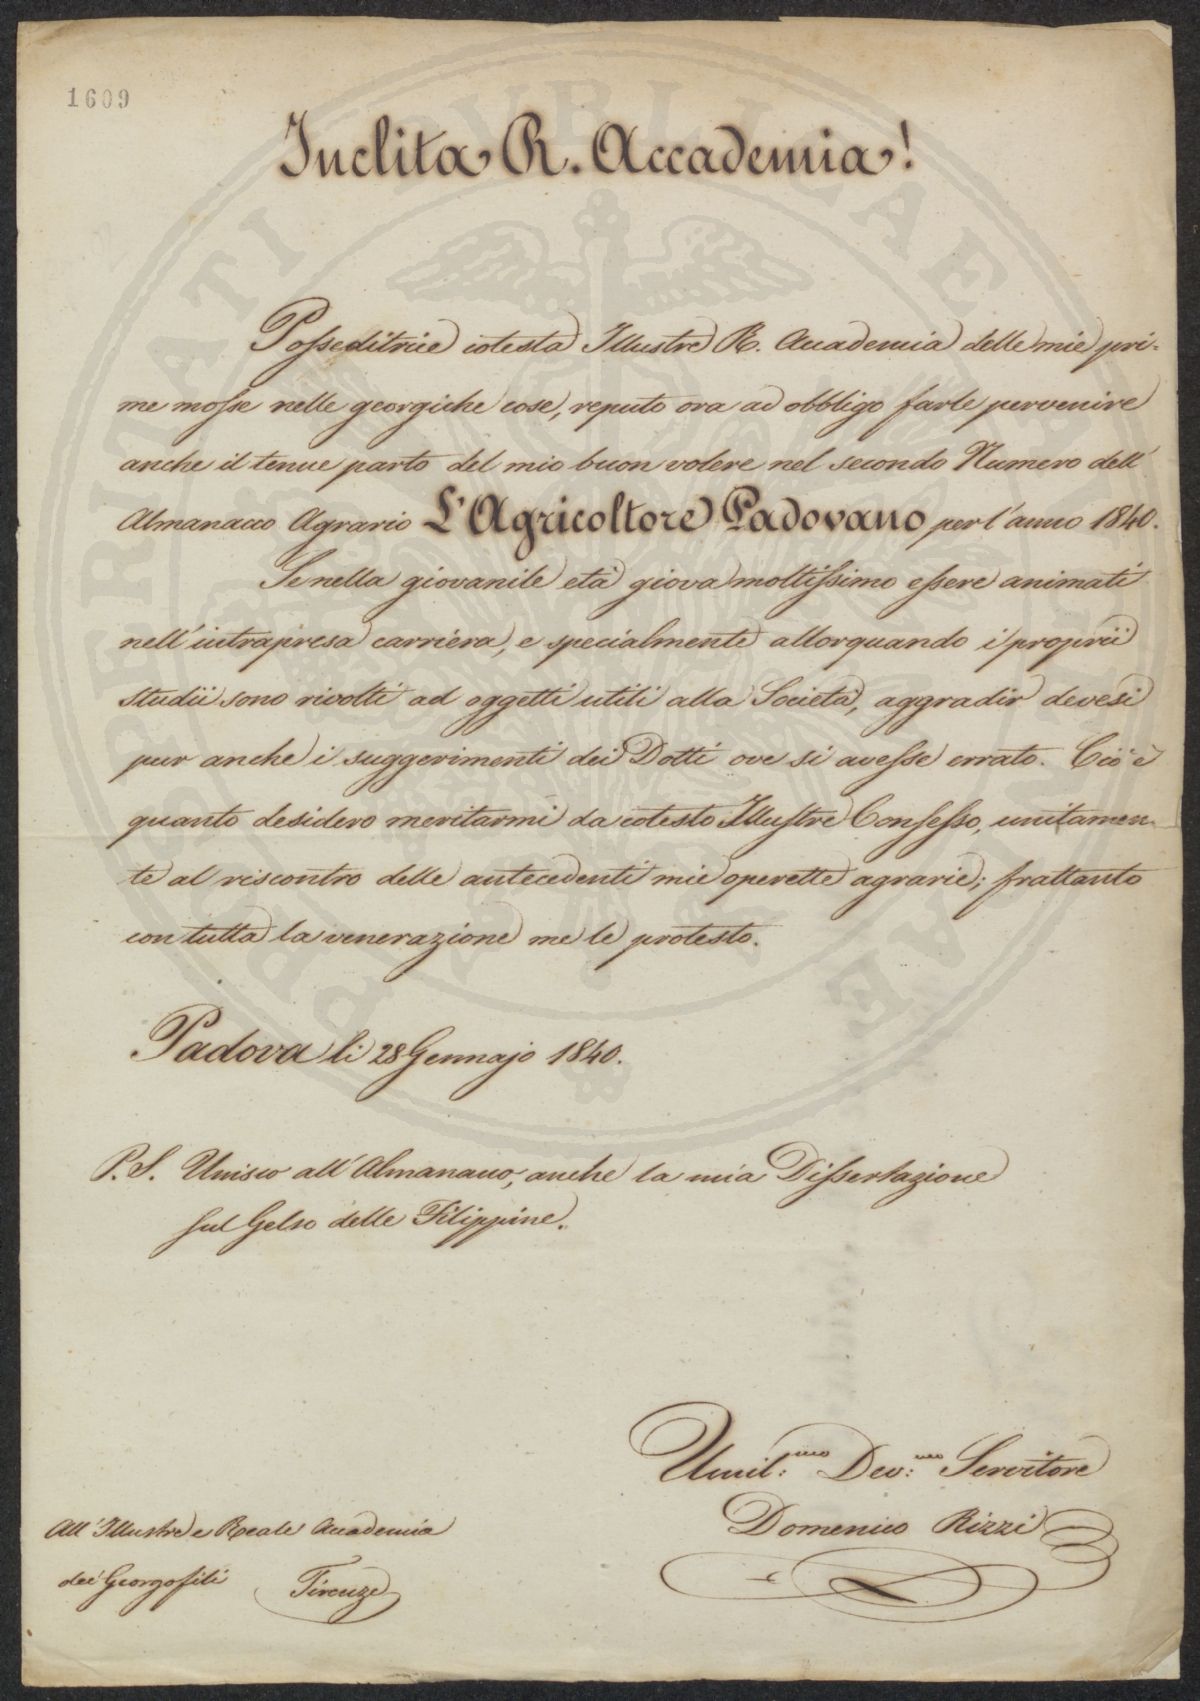 1609
Inclita R. Accademia!
PROSPERITATI PUBLICAE AUGENDAE
Posseditrice cotesta Illustre R. Accademia delle mie pri=
me mosse nelle georgiche cose, reputo ora ad obbligo farle pervenire
anche il tenue parto del mio buon volere nel secondo Numero dell'
Almanacco Agrario L'Agricoltore Padovano per l'anno 1840.
Se nella giovanile età giova moltissimo essere animati
nell'intrapresa carriera, e specialmente allorquando i proprii
studii sono rivolti ad oggetti utili alla Società, aggradir devesi
pur anche i suggerimenti dei Dotti ove si avesse errato. Ciò è
quanto desidero meritarmi da cotesto Illustre Consesso, unitamen-
te al riscontro delle antecedenti mie operette agrarie; frattanto
con tutta la venerazione me le protesto.
Padova li 28 Gennajo 1840.
P.S. Unisco all'Almanacco, anche la mia Dissertazione
sul Gelso delle Filippine.
Umil:mo Dev:mo Servitore
Domenico Rizzi
All'Illustre e Reale Accademia
dei Georgofili Firenze